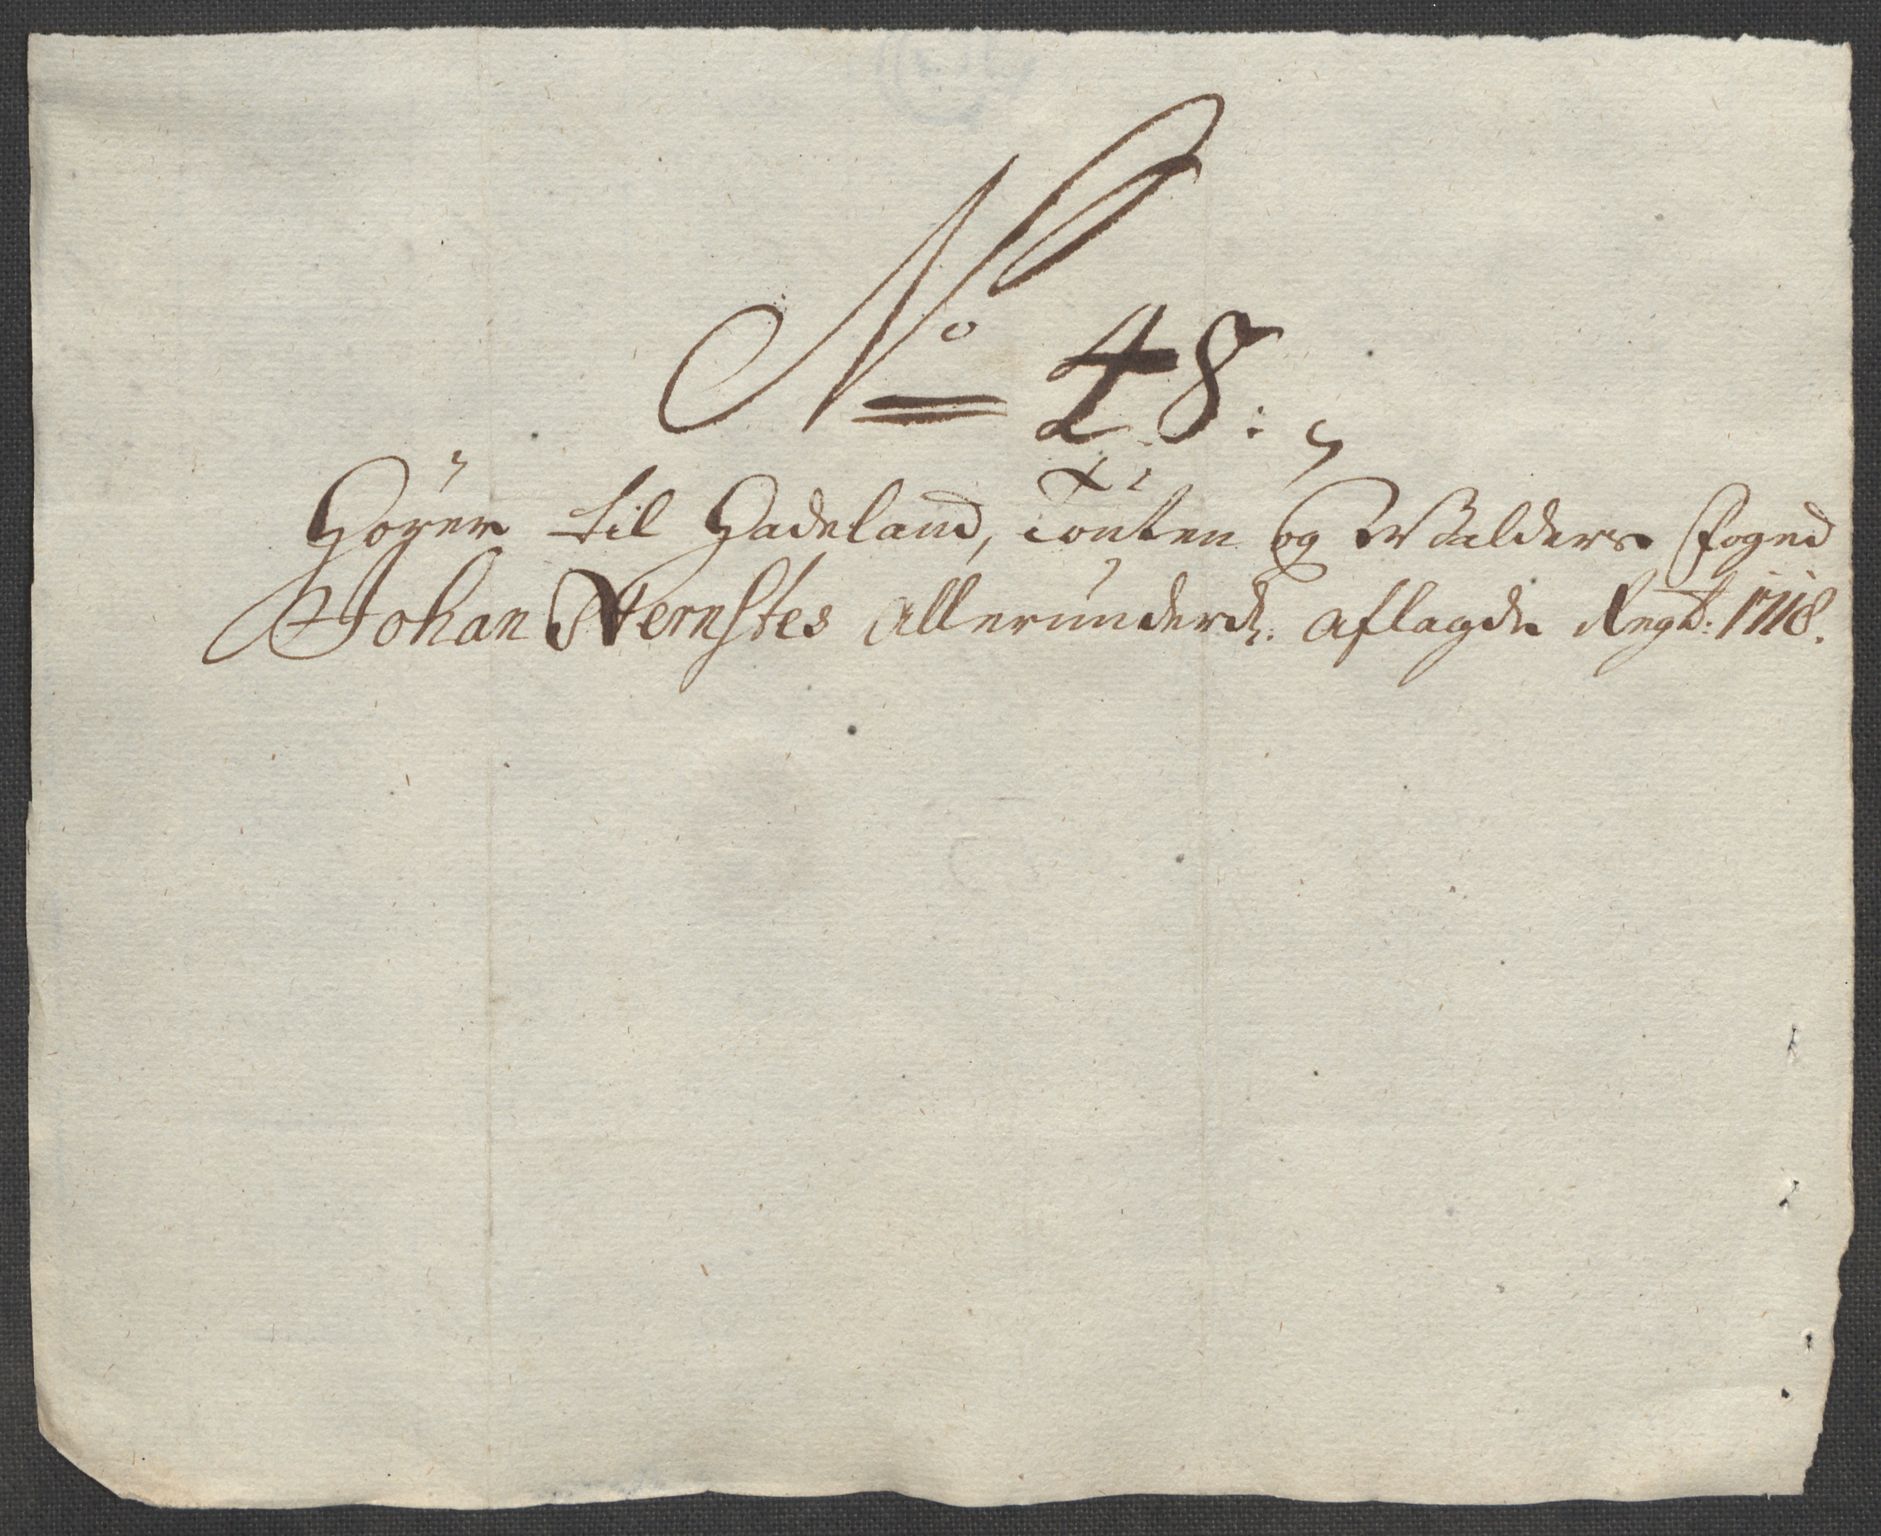 No 48:
Hörer til Hadeland, Toten og Walders Foged
Johan Nernstes allerunderd: aflagde Regsk: 1718.